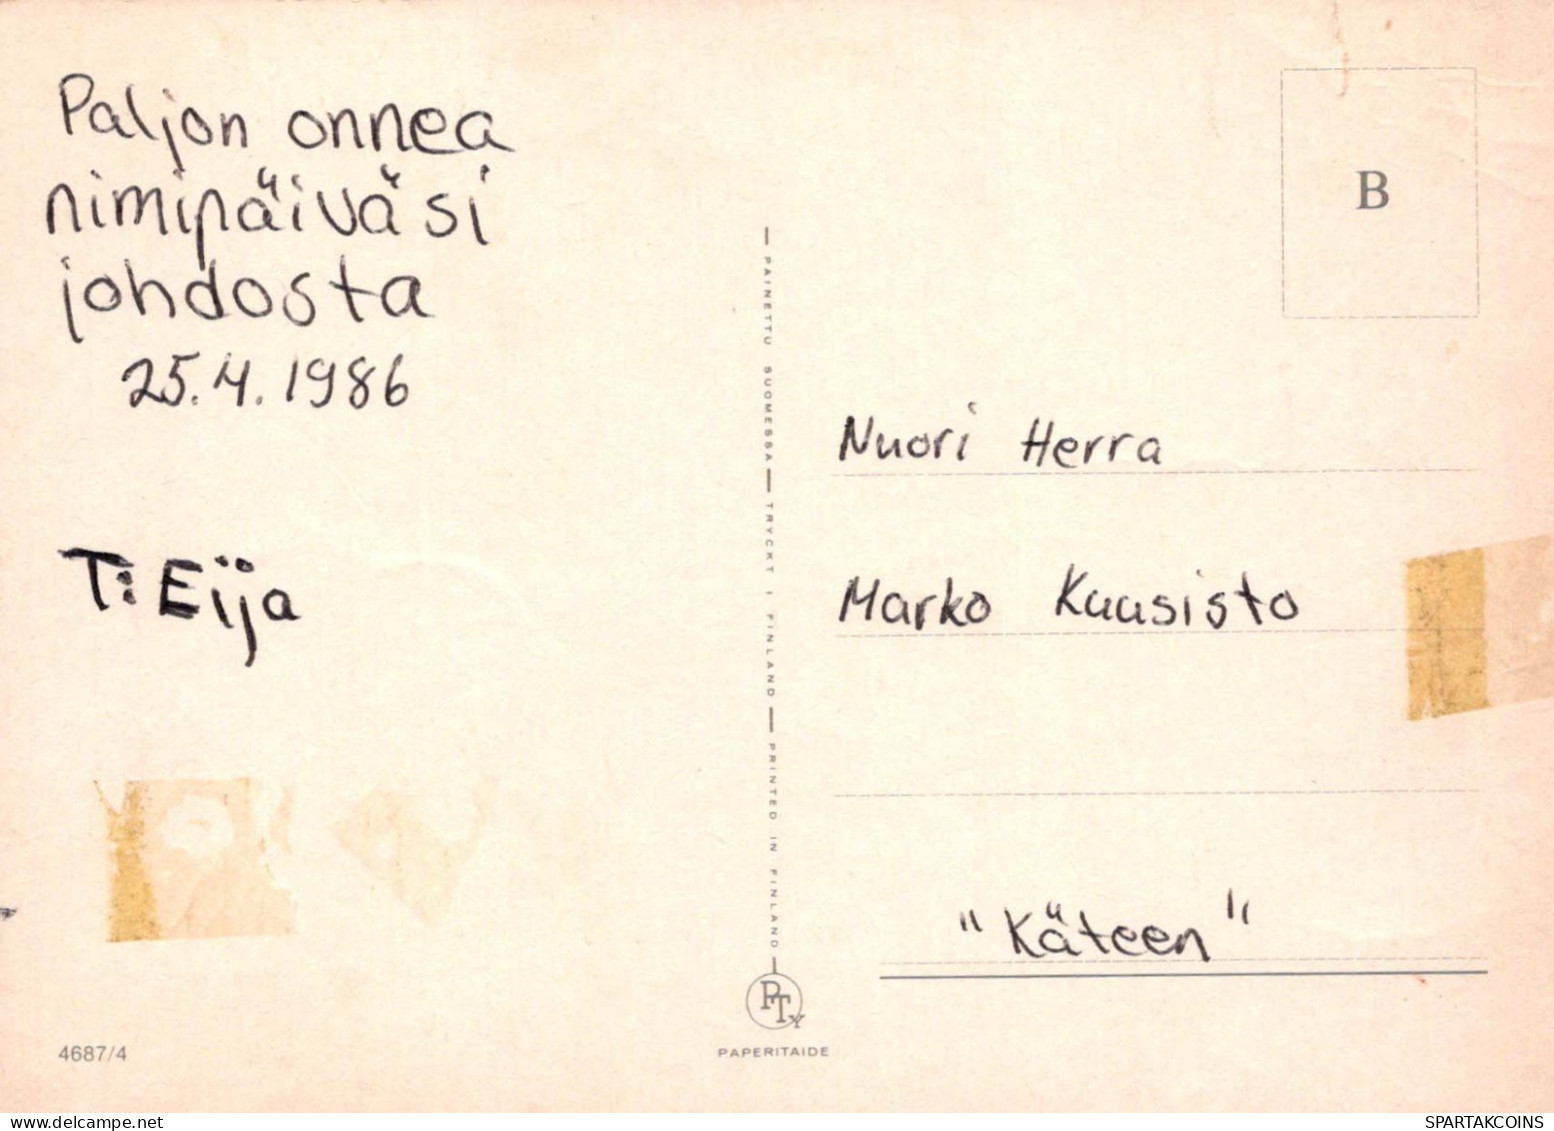 Paljon onnea
nimipäiväsi
johdosta
25.4.1986
T: Eija
4687/4
PAINETTU SUOMESSA — TRYCKT I FINLAND — PRINTED IN FINLAND
PTY
PAPERITAIDE
B
Nuori Herra
Marko Kuusisto
"Käteen"
www.delcampe.net
SPARTAKCOINS